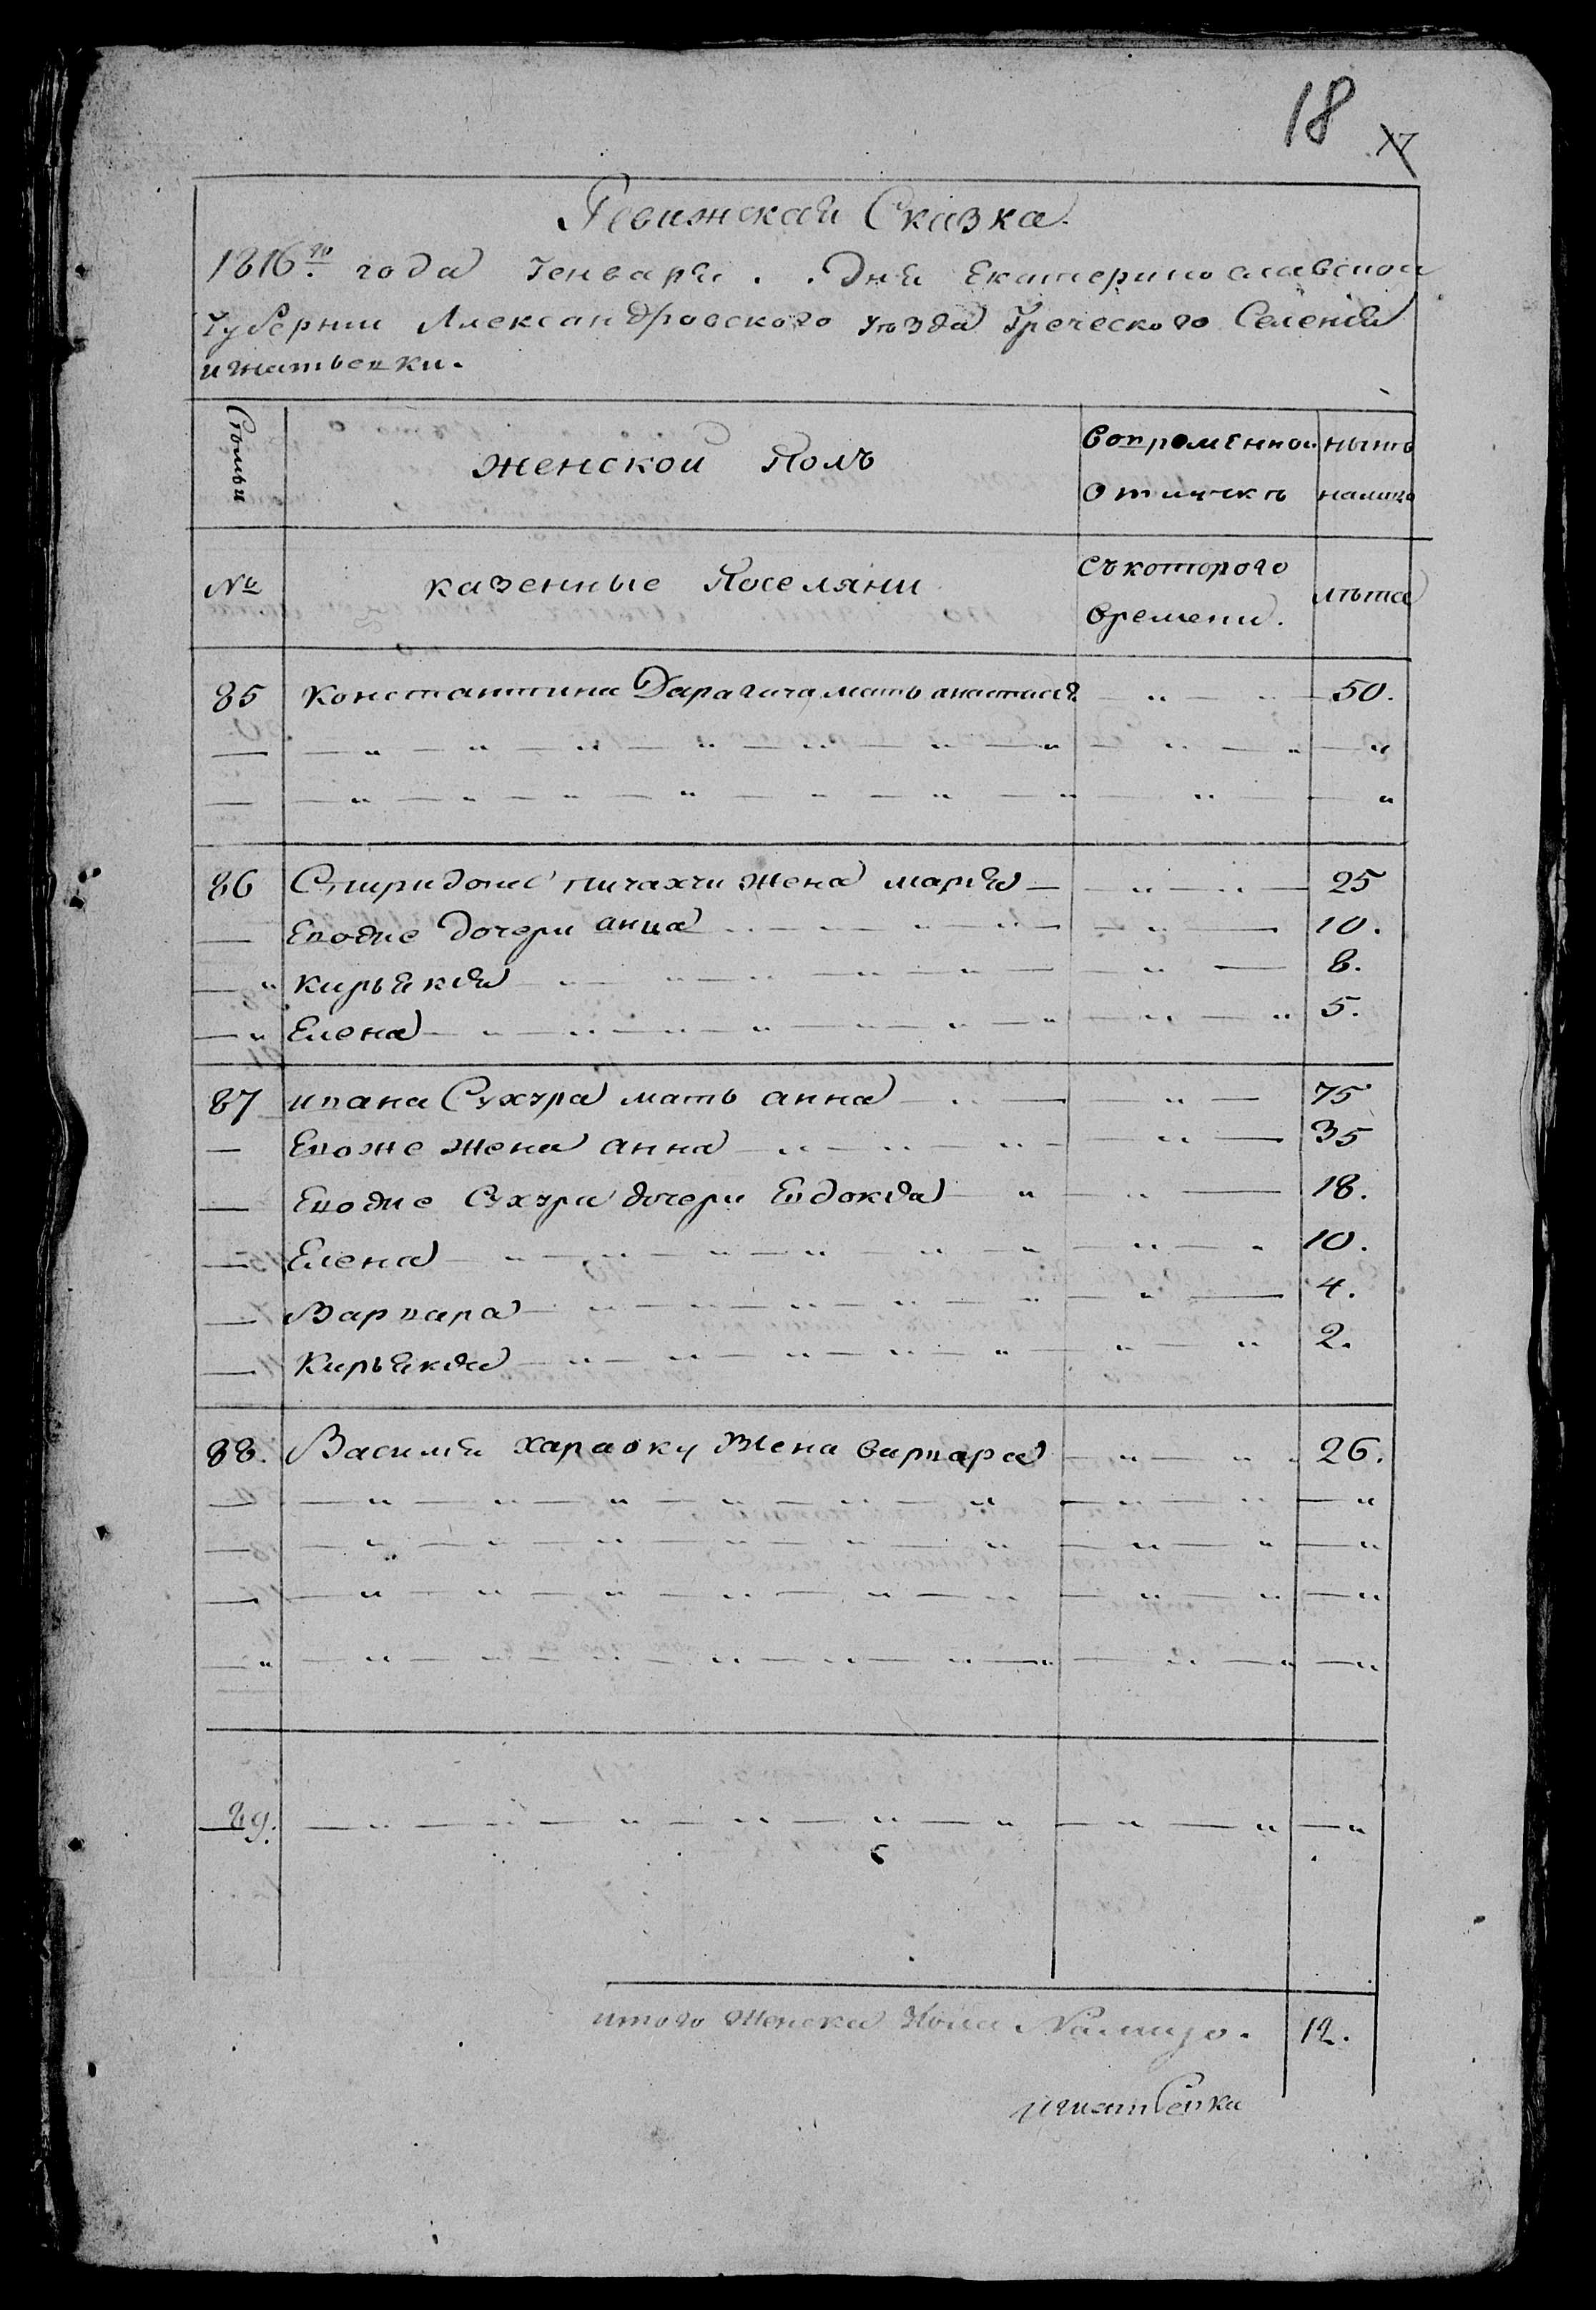 18 17
Ревижская Сказка.
1816го года Генваря . . Дня Екатеринославской
Губернии Александровского уѣзда Греческого Селенія
игнатьевки.
Семьи
женской Полъ
Вопременной
отлучкѣ
нынѣ
налицо
№
казенные Поселяни
съ которого
времени.
лѣта
85 Константина Дарагича мать анастасія 50.
86 Спиридона пичахчи жена марія 25
Евоже дочери анна 10.
Кирьякія 8.
Елена 5.
87 ивана Сухура мать анна 75
Евоже жена анна 35
Евоже Сухура дочери Евдокія 18.
Елена 10.
Варвара 4.
Кирьякія 2.
88. Василія хараоку жена варвара 26.
89.
итого женска пола Налицо. 12.
игнатьевка